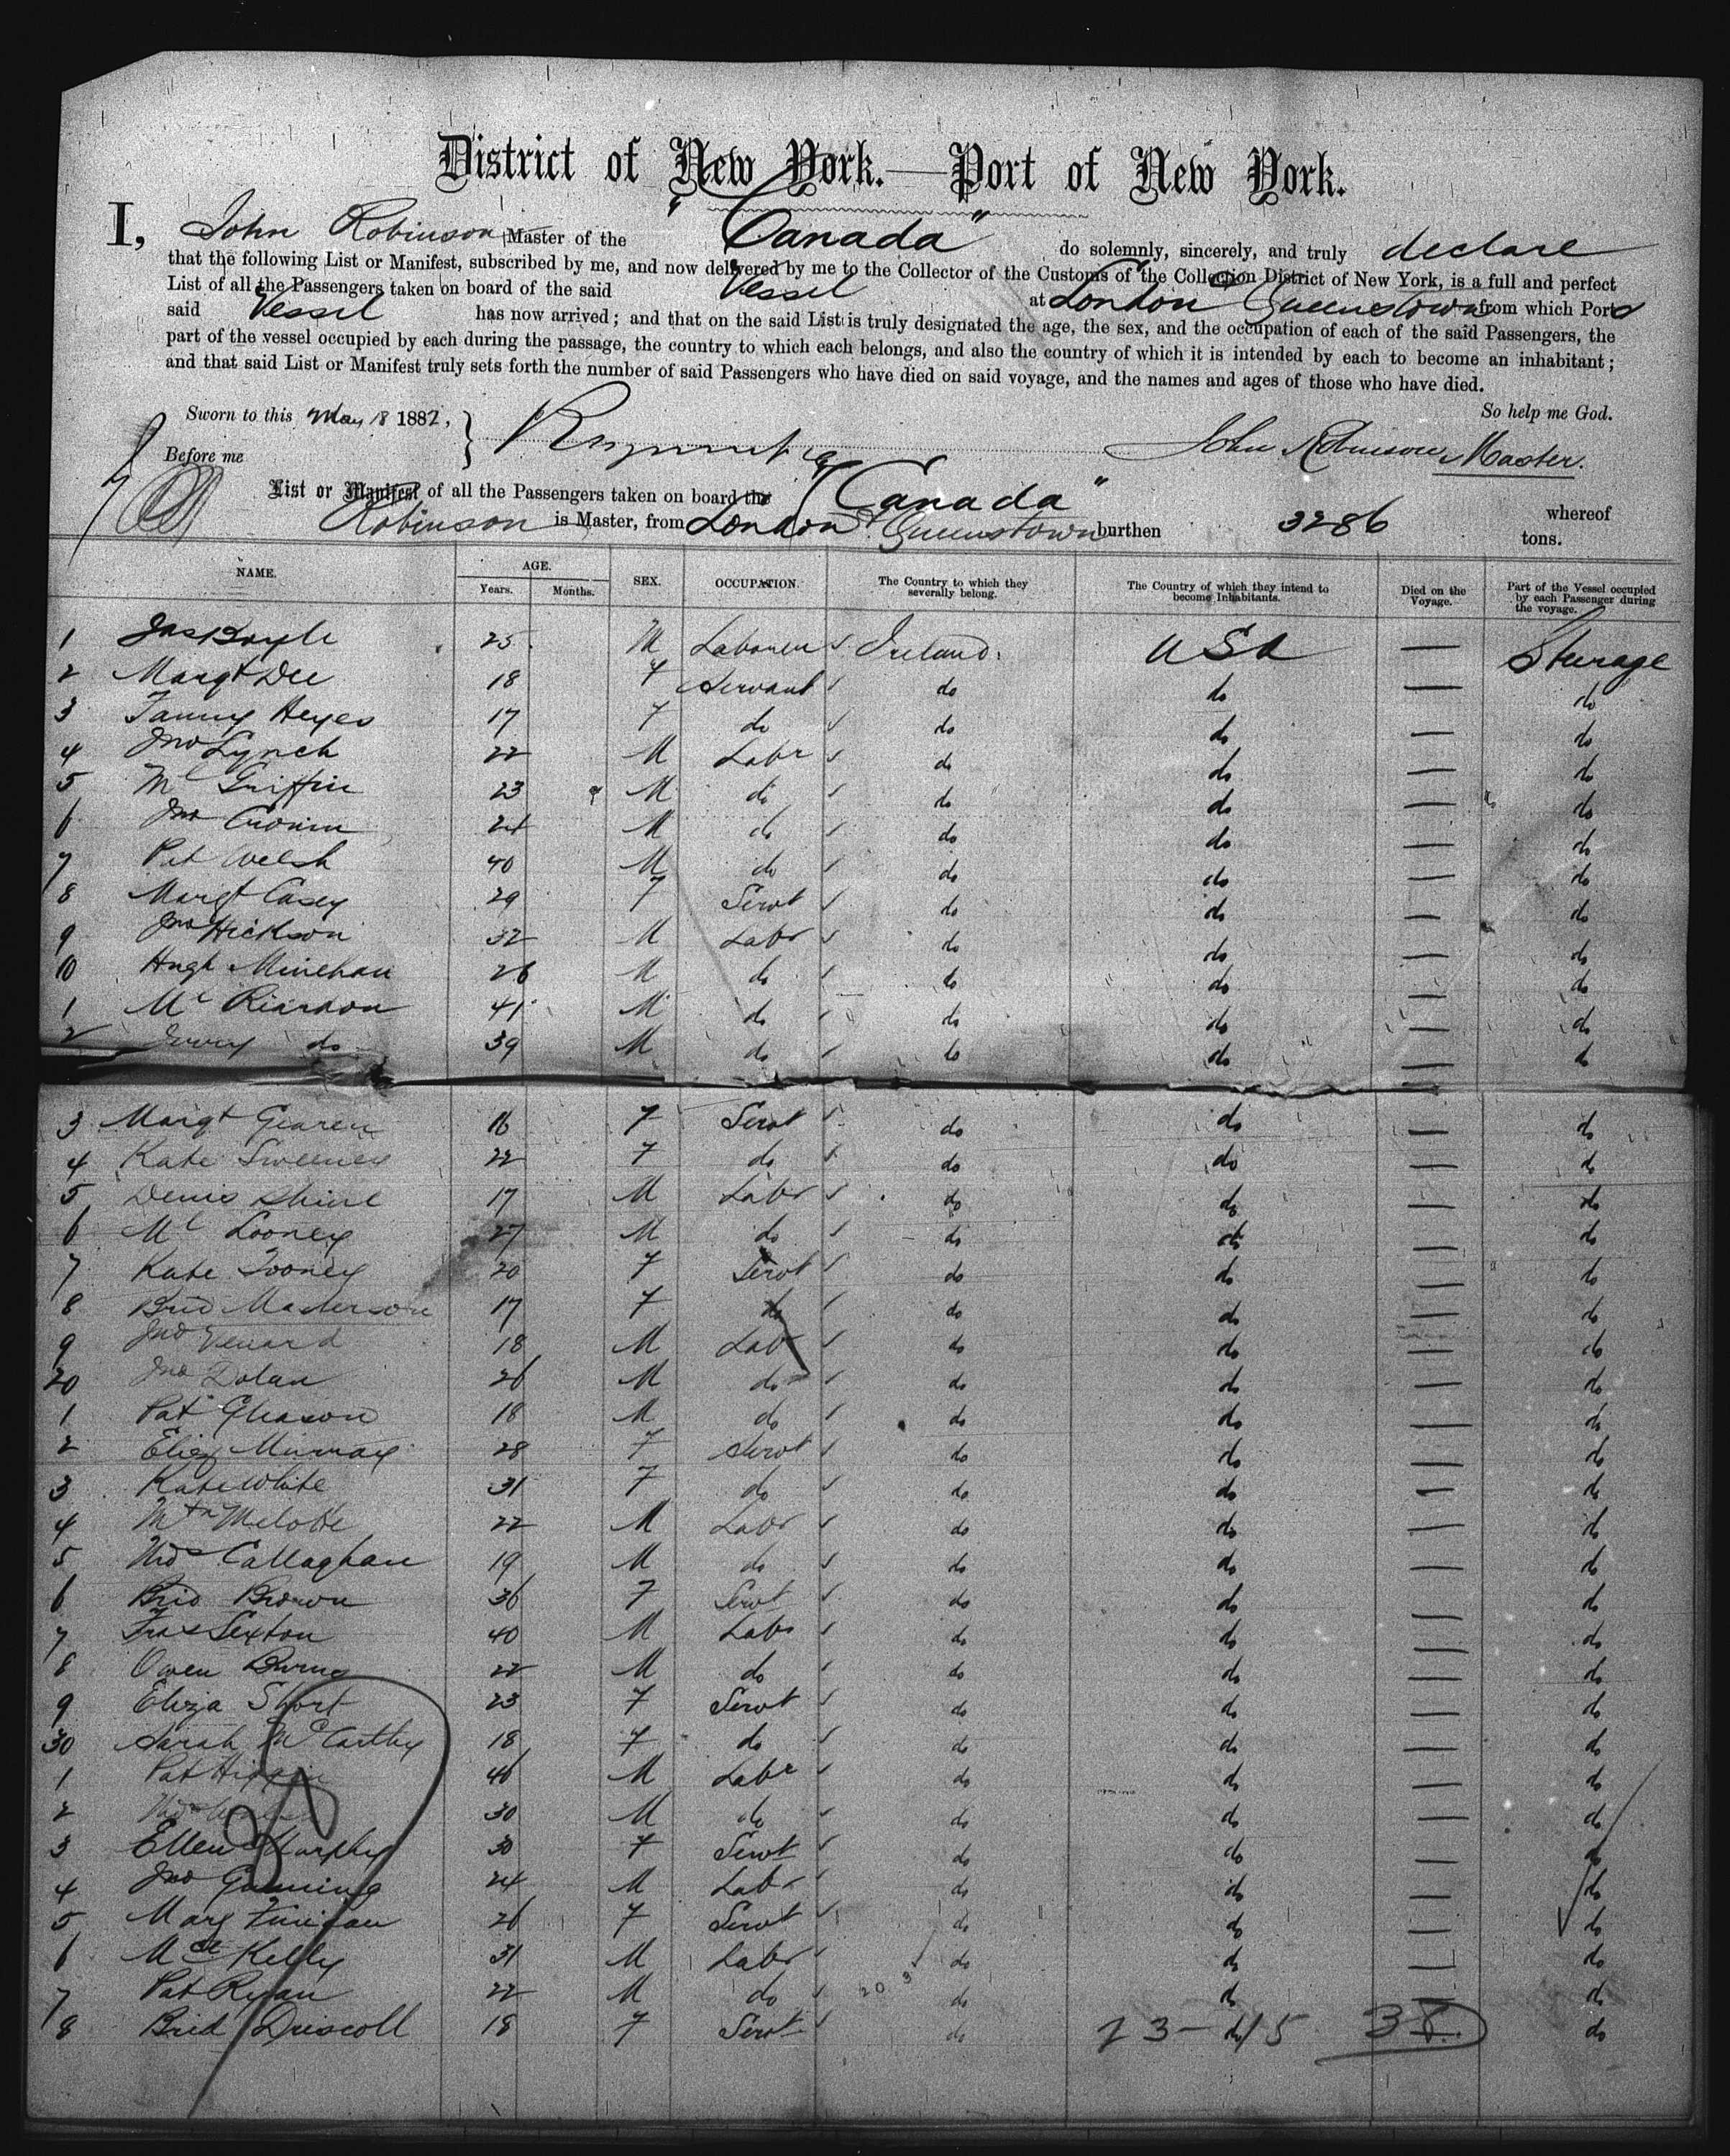 District of New York.—Port of New York.
I, John Robinson Master of the "Canada" do solemnly, sincerely, and truly declare
that the following List or Manifest, subscribed by me, and now delivered by me to the Collector of the Customs of the Collection District of New York, is a full and perfect
List of all the Passengers taken on board of the said Vessel at London & Queenstown from which Ports
said Vessel has now arrived; and that on the said List is truly designated the age, the sex, and the occupation of each of the said Passengers, the
part of the vessel occupied by each during the passage, the country to which each belongs, and also the country of which it is intended by each to become an inhabitant;
and that said List or Manifest truly sets forth the number of said Passengers who have died on said voyage, and the names and ages of those who have died.
So help me God.
Sworn to this May 18 1882,
John Robinson Master.
Before me
List or Manifest of all the Passengers taken on board the "Canada" whereof
Robinson is Master, from London & Queenstown burthen 3286 tons.
NAME. AGE. Years. Months. SEX. OCCUPATION. The Country to which they severally belong. The Country of which they intend to become Inhabitants. Died on the Voyage. Part of the Vessel occupied by each Passenger during the voyage.
1 Jas Boyle 25 M Laborer Ireland. USA — Sturage
2 Margt Dee 18 F Servant do do — do
3 Fanny Heyes 17 F do do do — do
4 Jno Lynch 22 M Labr do do — do
5 Ml Griffin 23 M do do do — do
6 Jno Cronin 24 M do do do — do
7 Pat Welsh 40 M do do do — do
8 Margt Casey 29 F Servt do do — do
9 Jno Hickson 32 M Labr do do — do
10 Hugh Minehan 26 M do do do — do
1 Ml Riardon 41 M do do do — do
2 Jerry do 39 M do do do — do
3 Margt Gearen 16 F Servt do do — do
4 Kate Sweeney 22 F do do do — do
5 Denis Shine 17 M Labr do do — do
6 Ml Looney 27 M do do do — do
7 Kate Tooney 20 F Servt do do — do
8 Brid Masterson 17 F do do do — do
9 Jno 18 M Labr do do — do
20 Jno Dolan 26 M do do do — do
1 Pat Gleason 18 M do do do — do
2 Eliz Murray 28 F Servt do do — do
3 Kate White 31 F do do do — do
4 Mtn 22 M Labr do do — do
5 Thos Callaghan 19 M do do do — do
6 Brid Brown 36 F Servt do do — do
7 Fras Sexton 40 M Labr do do — do
8 Owen Burns 22 M do do do — do
9 Eliza Short 23 F Servt do do — do
30 Sarah McCarthy 18 F do do do — do
1 Pat 46 M Labr do do — do
2 Thos 30 M do do do — do
3 Ellen Murphy 30 F Servt do do — do
4 Jno 24 M Labr do do — do
5 Marg 26 F Servt do do — do
6 Mcl Kelly 31 M Labr do do — do
7 Pat Ryan 22 M do do do — do
8 Brid Driscoll 18 F Servt do do do
23 - 15 38